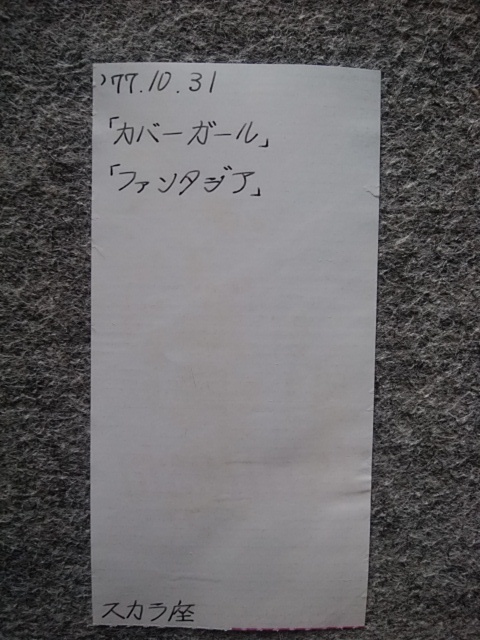 '77.10.31
「カバーガール」
「ファンタジア」
スカラ座